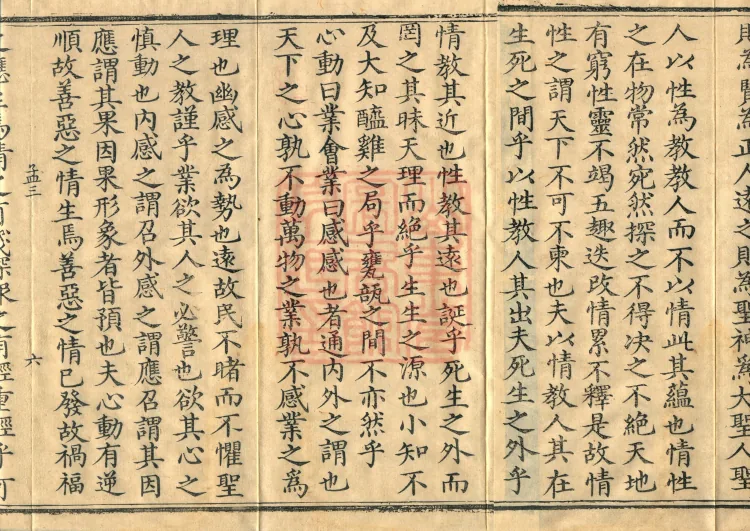 則爲賢爲正人遠之則爲聖神爲大聖人聖
人以性爲教教人而不以情此其蘊也情性
之在物常然宛然探之不得决之不絶天地
有窮性靈不竭五趣迭改情累不釋是故情
性之謂天下不可不柬也夫以情教人其在
生死之間乎以性教人其出夫死生之外乎
情教其近也性教其遠也誕乎死生之外而
罔之其昧天理而絶乎生生之源也小知不
及大知醯雞之局乎甕瓿之間不亦然乎
心動曰業會業曰感感也者通內外之謂也
天下之心孰不動萬物之業孰不感業之爲
理也幽感之爲勢也遠故民不睹而不懼聖
人之教謹乎業欲其人之必警也欲其心之
慎動也內感之謂召外感之謂應召謂其因
應謂其果因果形象者皆預也夫心動有逆
順故善惡之情生焉善惡之情已發故禍福
孟三
六